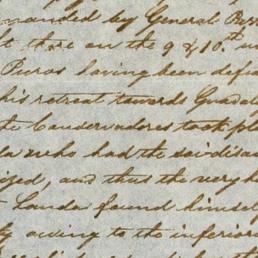 manded by General
t there on the 9 & 10th
Puros having been
his retreat towards
te Conservadores took
a who had the soi-disa
, and thus the very
Landa found himself
owing to the inferior